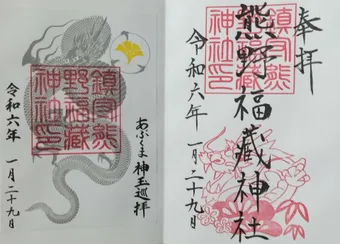 奉拝
鎮守熊
野福藏
神社印
熊野福藏神社
令和六年 一月二十九日
鎮守熊
野福藏
神社印
あぶくま神玉巡拝
令和六年 一月二十九日